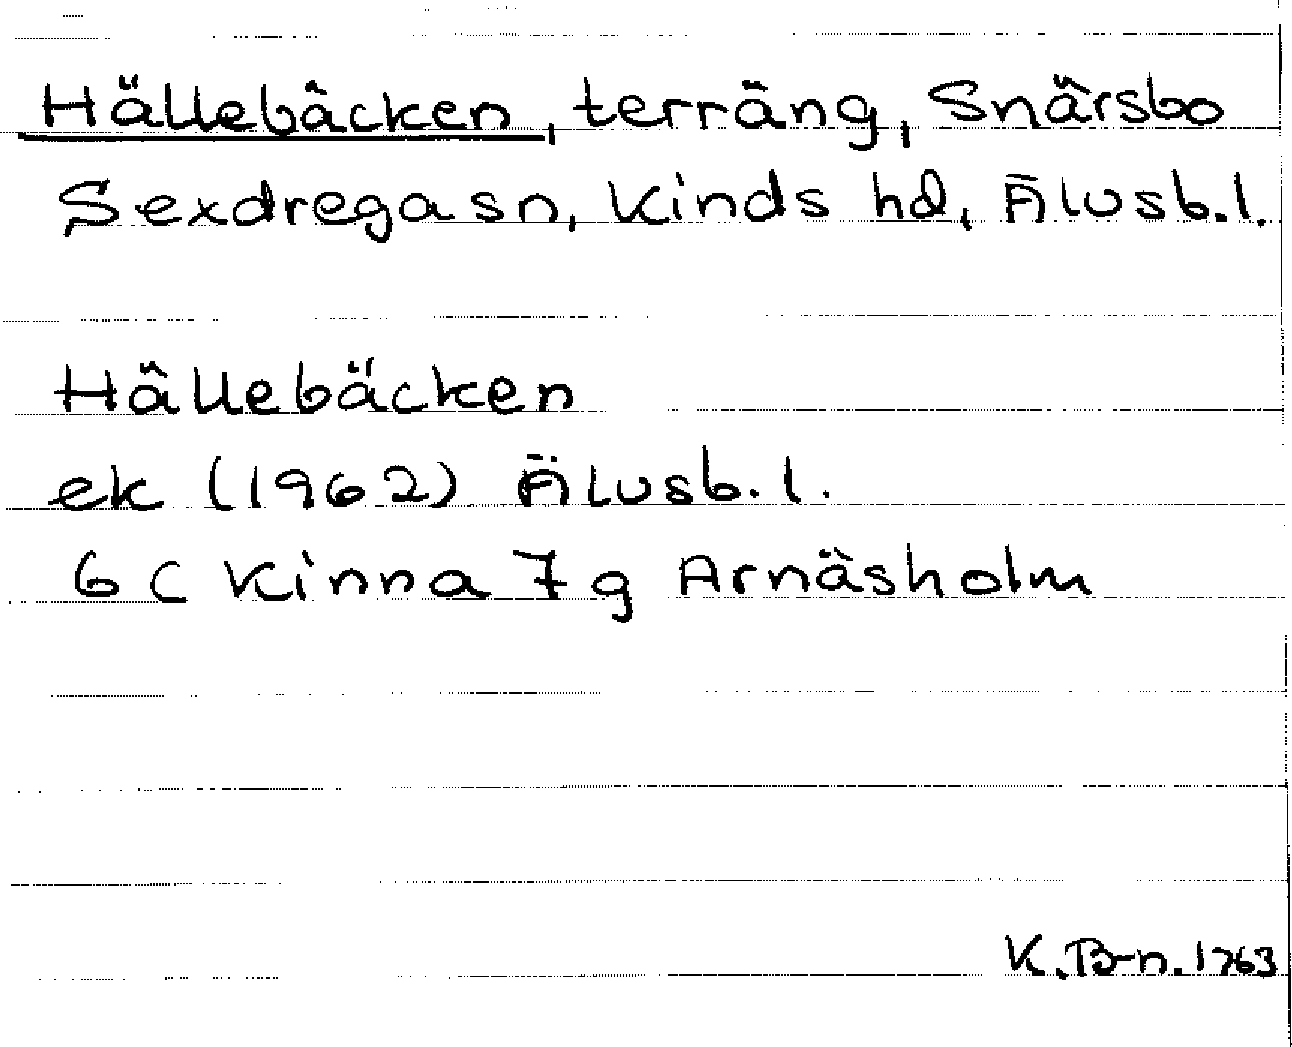 Hällebäcken, terräng, Snärsbo
Sexdrega sn, Kinds hd, Älvsb.l.
Hällebäcken
ek (1962) Älvsb.l.
6 C Kinna 7 g Arnäsholm
K.B-n. 1963